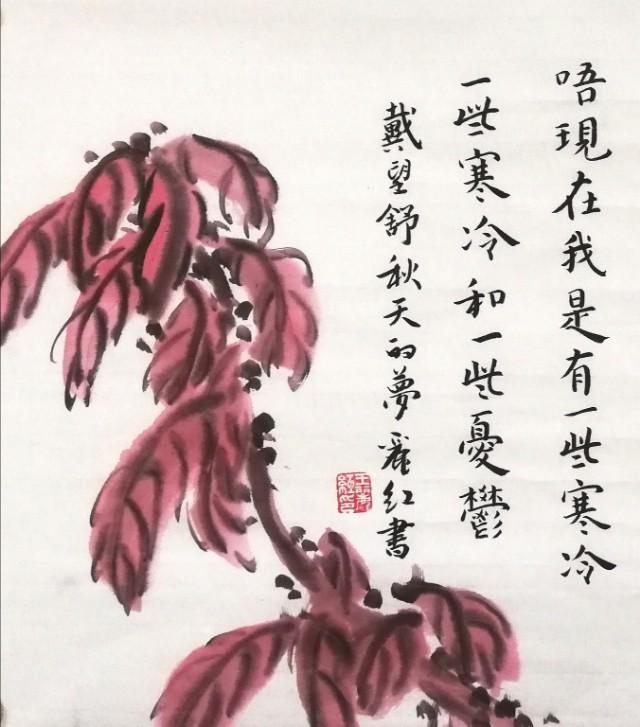 唔現在我是有一些寒冷
一些寒冷和一些憂鬱
戴望舒秋天的夢 红書